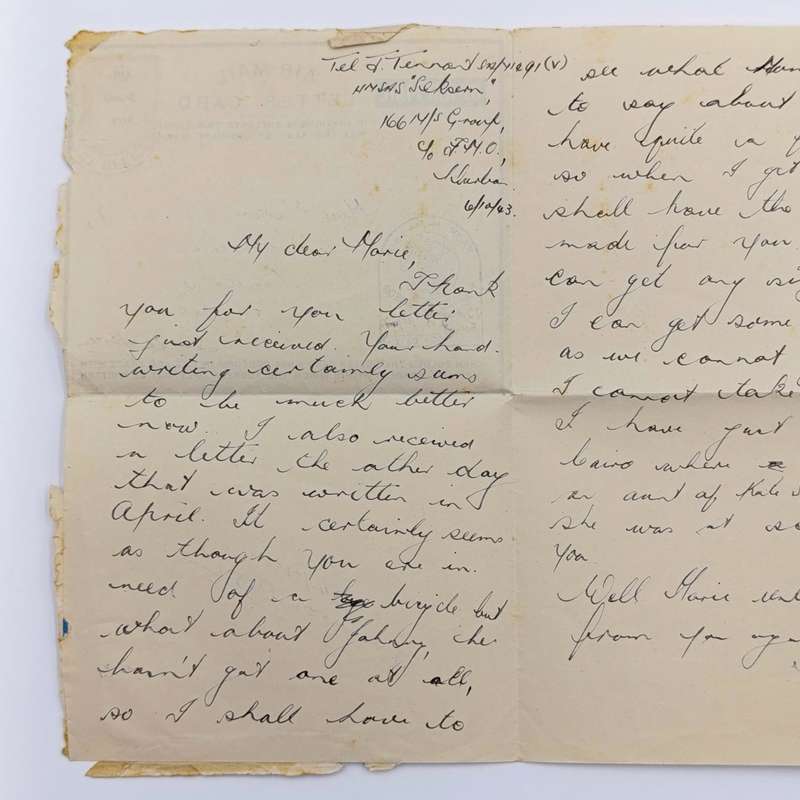 Tel J. Tennant 
HMSAS "Seksern",
166 M/S Group,
c/o F.M.O,
Durban.
6/10/43.
My dear Marie,
Thank
you for you letter
just received. Your hand-
writing certainly seems
to be much better
now. I also received
a letter the other day
that was written in
April. It certainly seems
as though you are in
need of a bicycle but
what about Johnny, he
hasn't got one at all,
so I shall have to
see what Mum
to say about
have quite a
so when I get
shall have the
made for you
can get any
I can get some
as we cannot
I cannot take
I have just
Cairo where
an aunt of Kate
she was at
you.
Well Marie
from you
AIR MAIL
LETTER CARD